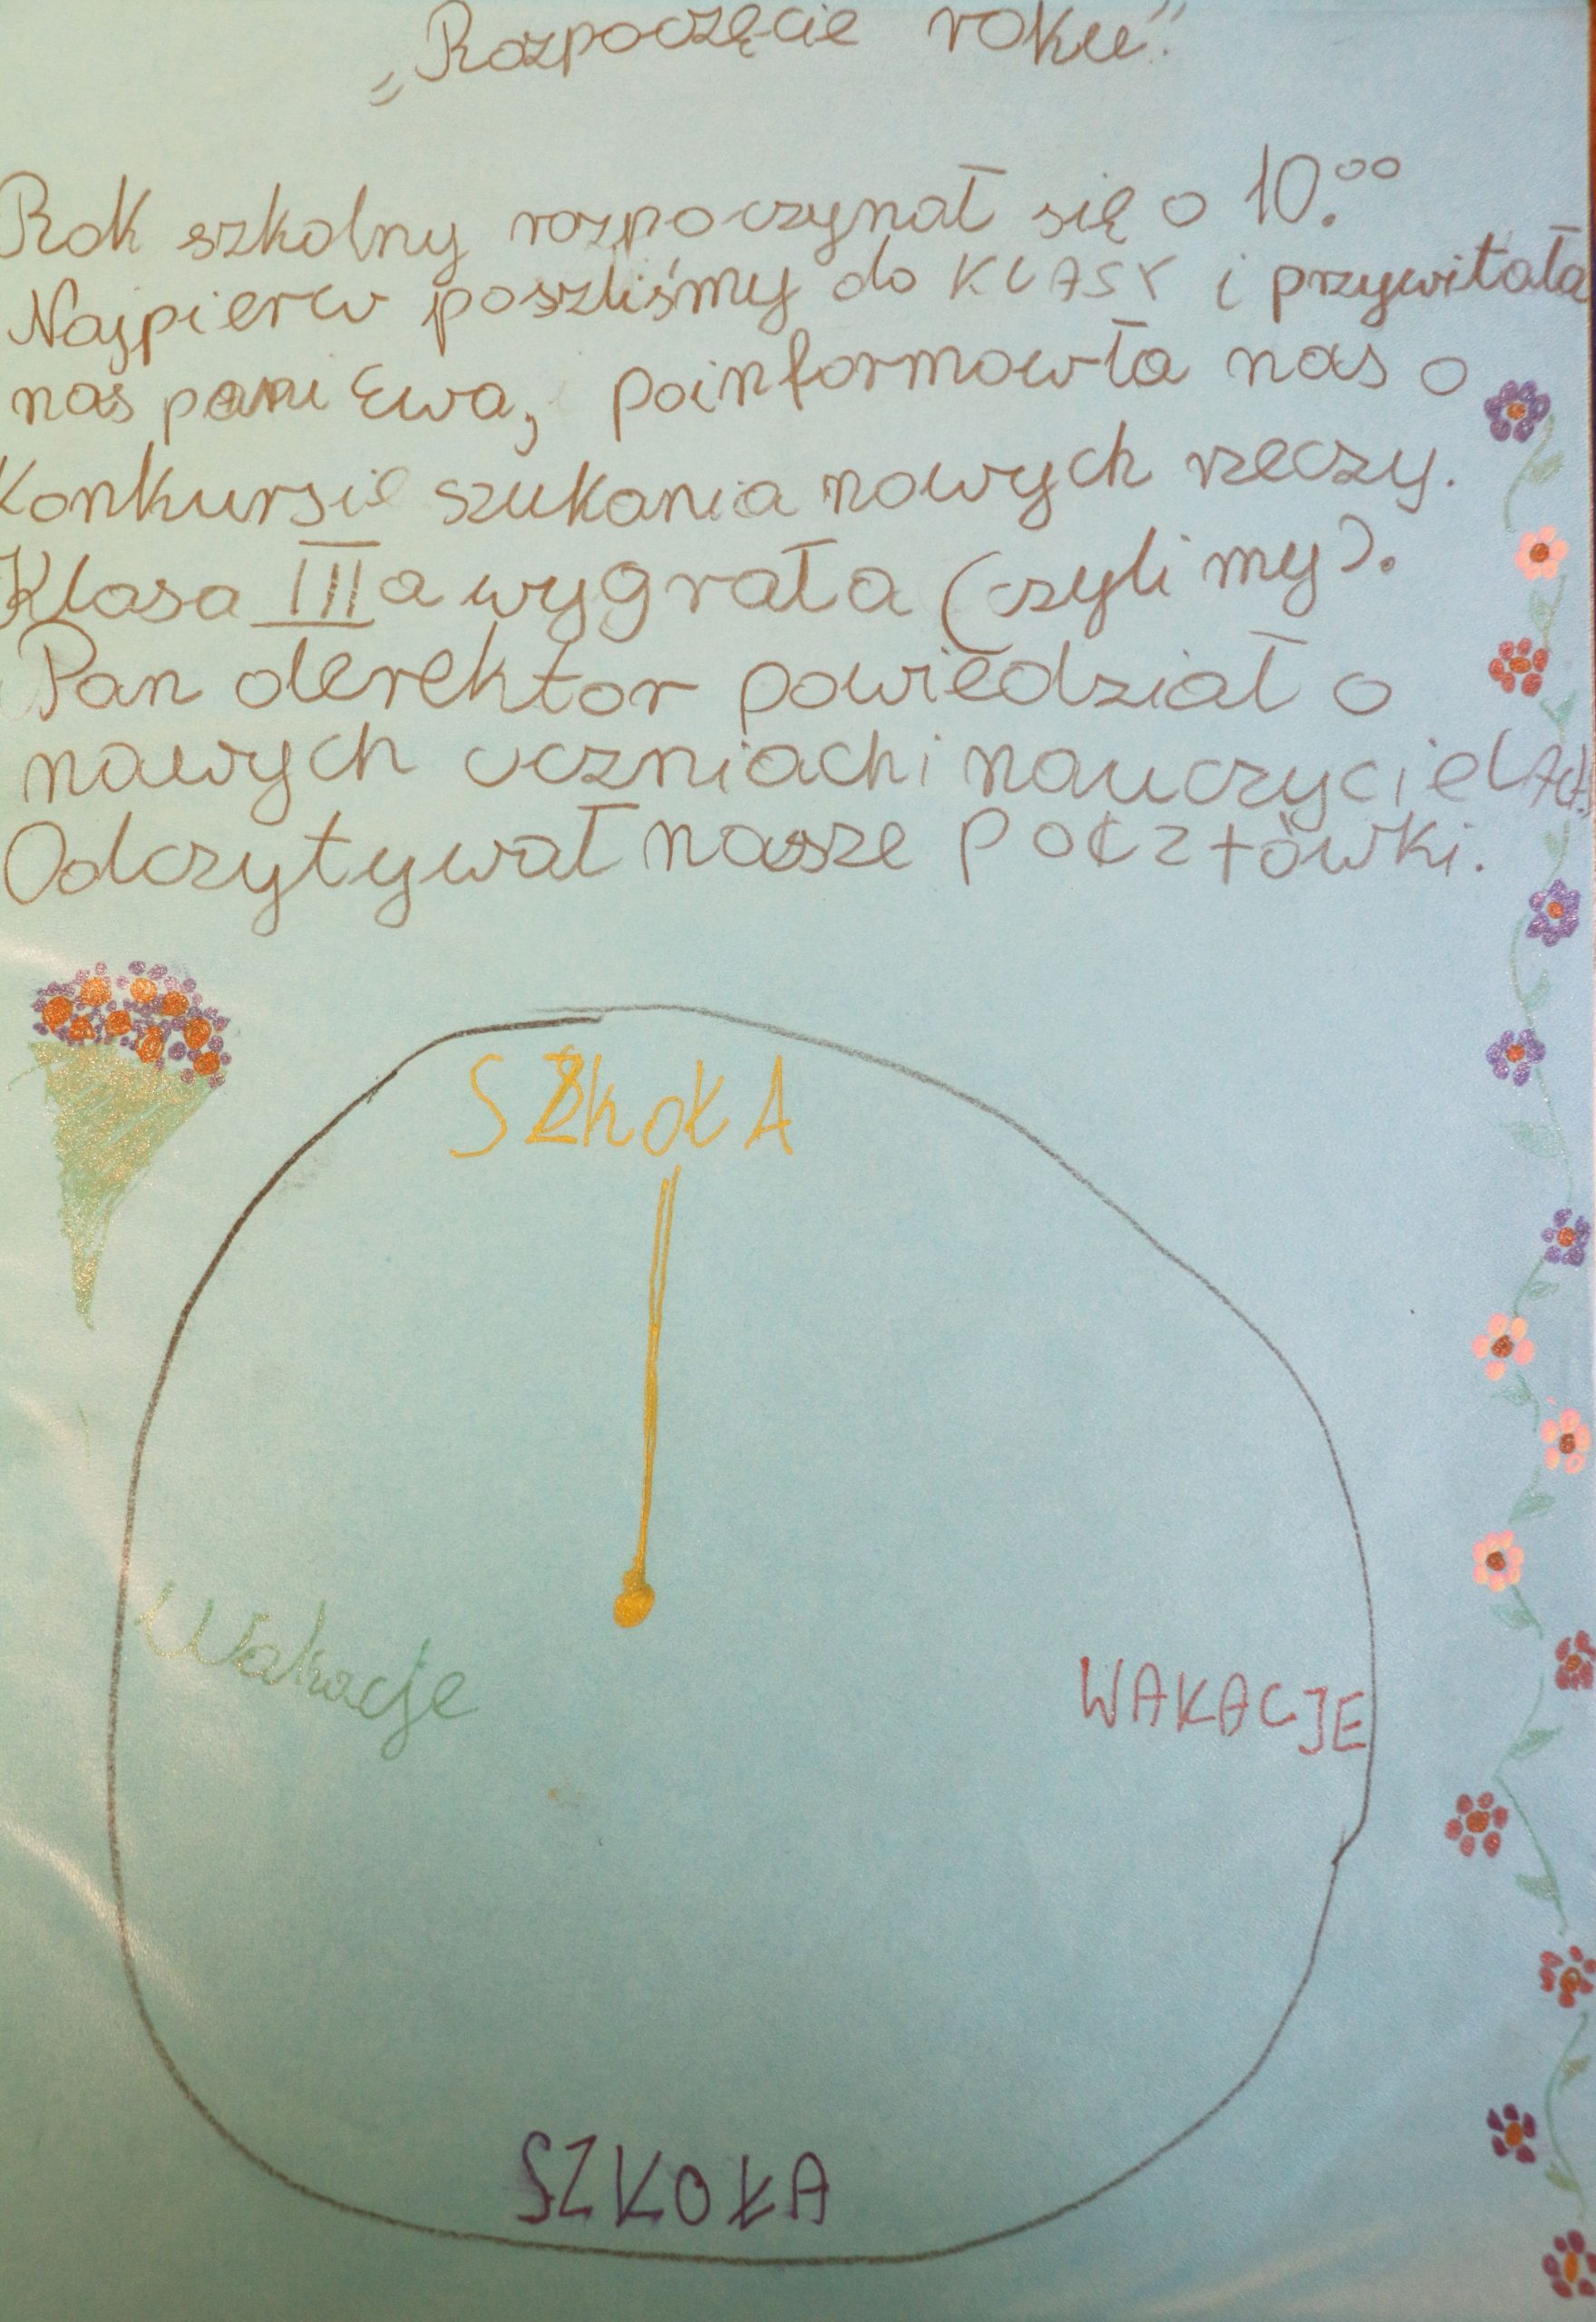 „Rozpoczęcie roku"
Rok szkolny rozpoczynał się o 10.⁰⁰
Najpierw poszliśmy do KLASY i przywitała
nas pani Ewa, poinformowła nas o
Konkursie szukania nowych rzeczy.
Klasa III a wygrała (czyli my).
Pan derektor powiedział o
nowych uczniach i nauczycielach.
Odczytywał nasze pocztówki.
SZkoŁA
Wakacje
WAKACJE
SZKOŁA